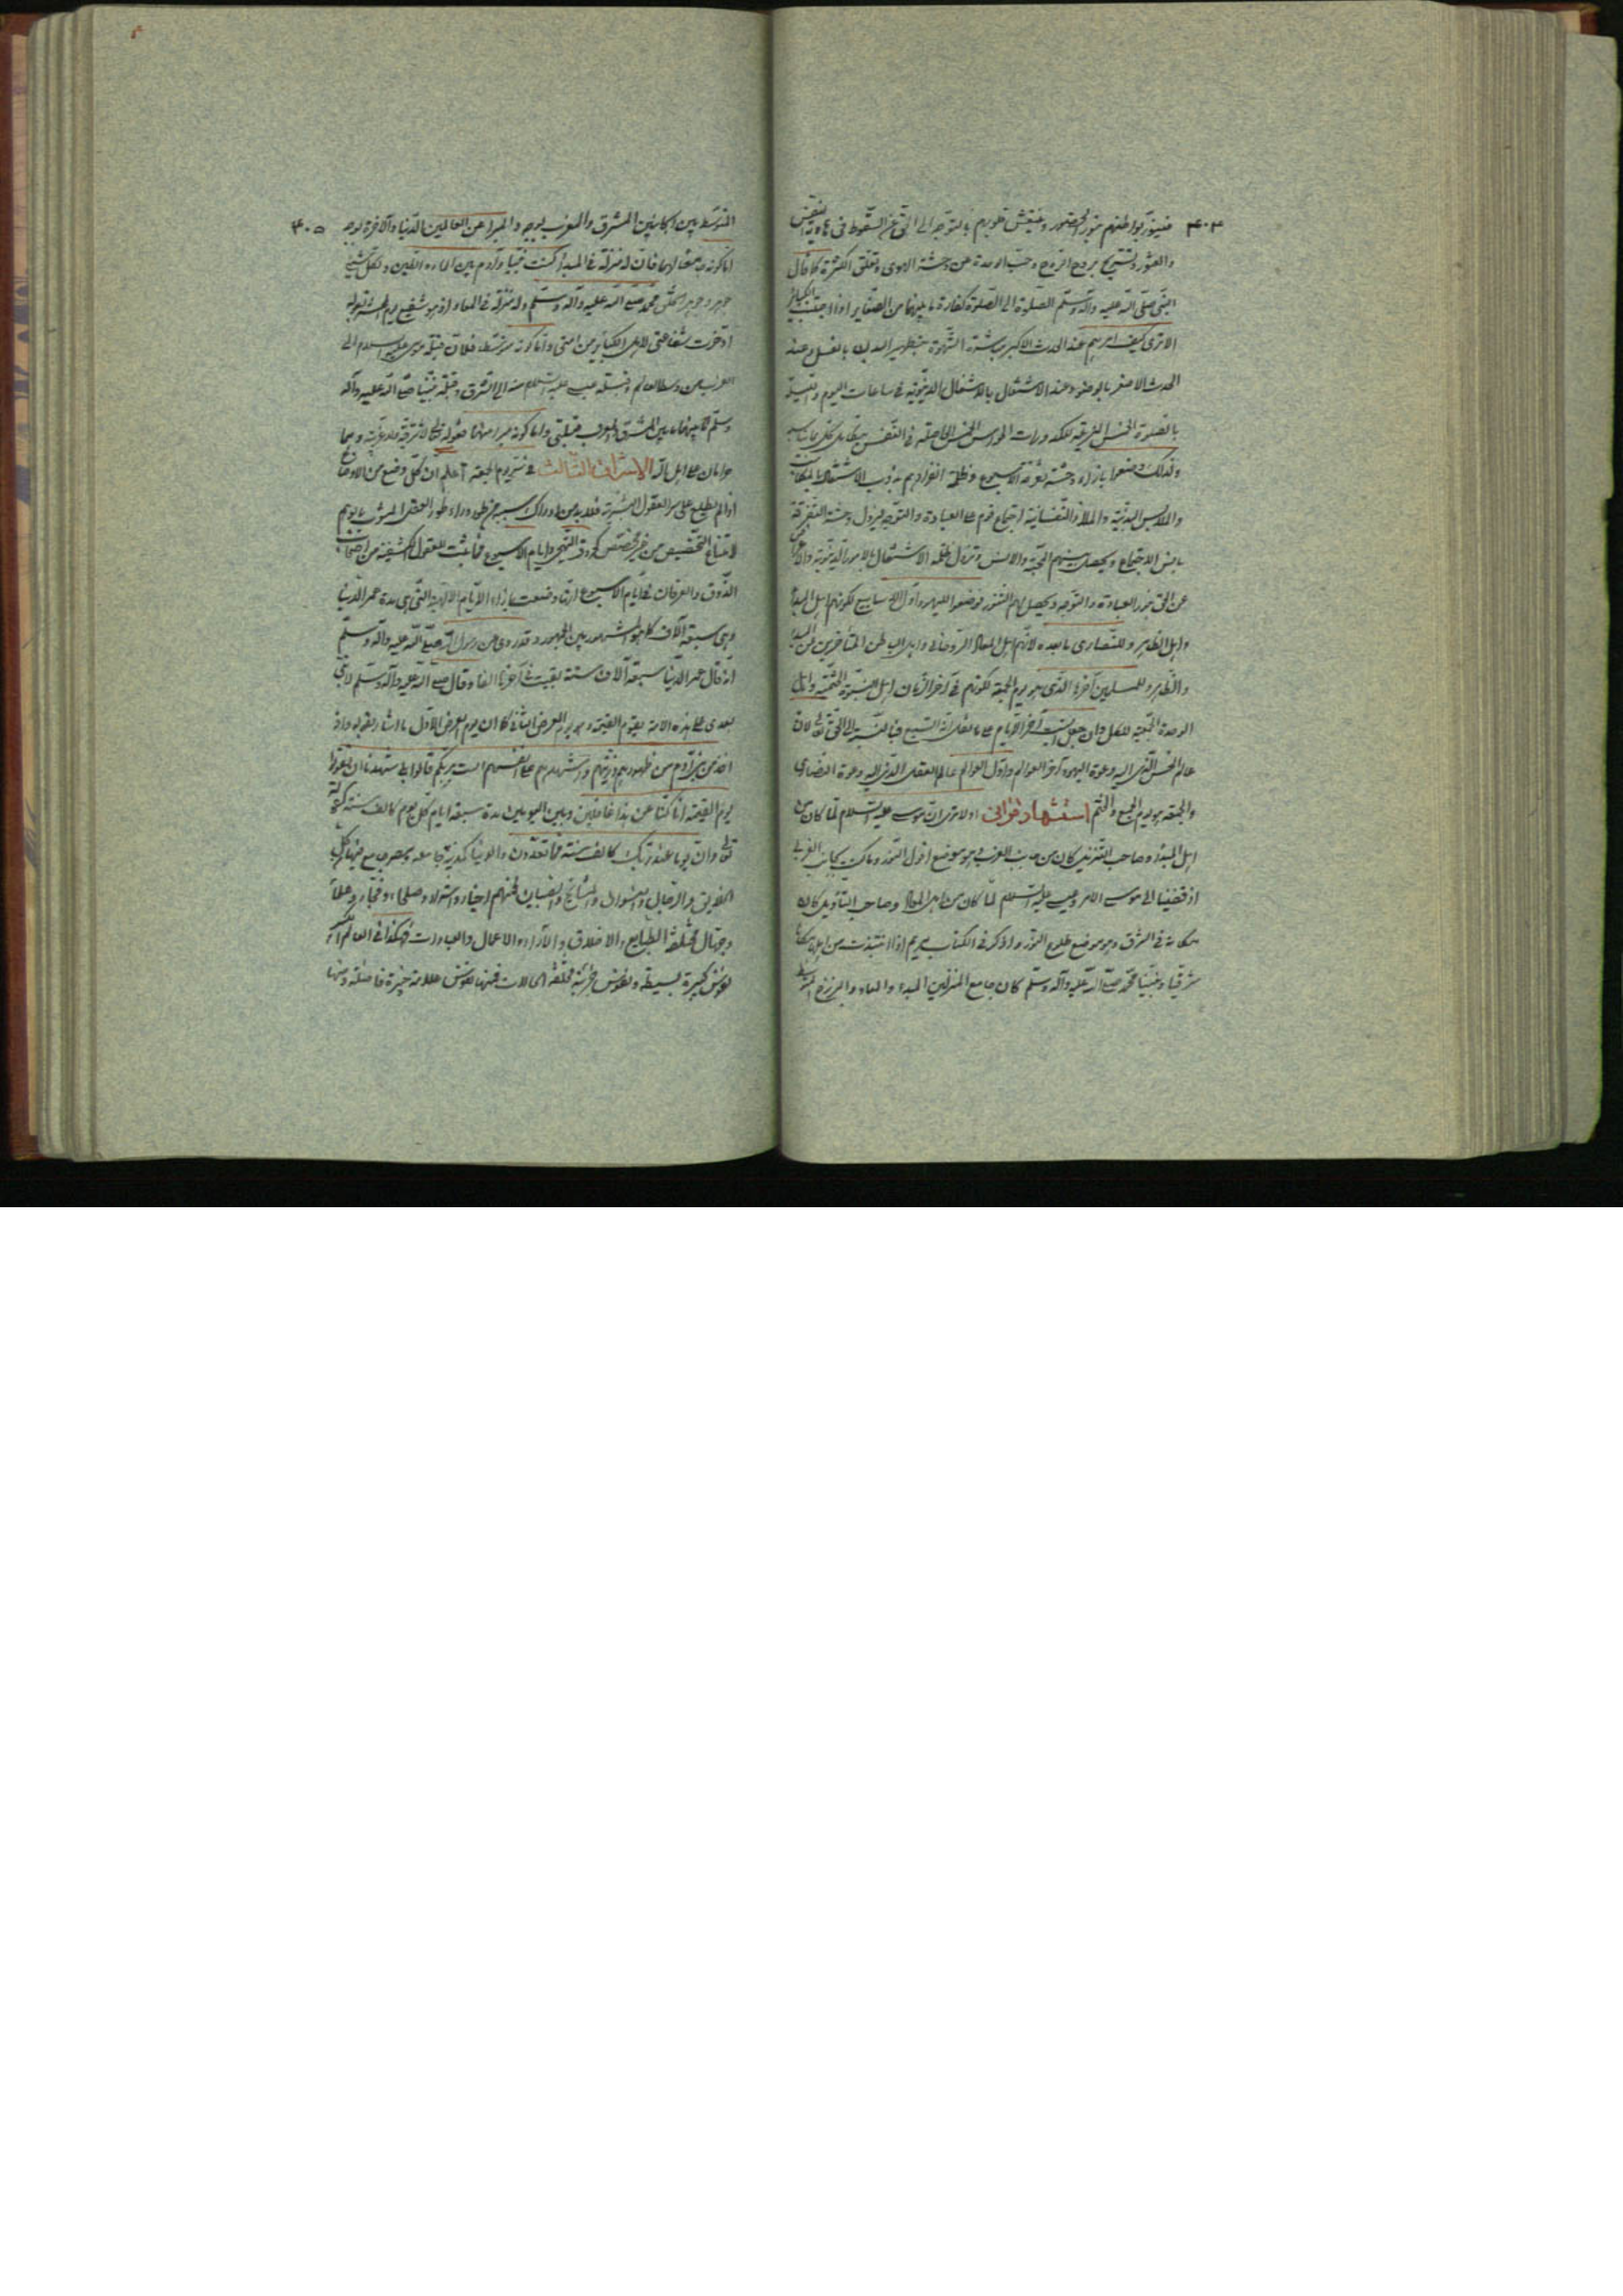 ۴۰۴
فيتنور بواطنهم بنور الحضور وينتعش قلوبهم بالتوجه الى الحق عن السقوط فى هاوية النفس
والعثور وتستريح بروح الروح وحب الوحدة عن وحشة الهوى وتعلق الكثرة كما قال
النبى صلى الله عليه وآله وسلم الصلوة الى الصلوة كفارة ما بينهما من الصغاير اذا اجتنبت الكبائر
الا ترى كيف امرهم عند الحدث الاكبر ومباشرة الشهوة بتطهير البدن بالغسل وعند
الحدث الاصغر بالوضوء وعند الاشتغال بالاشغال الدنيوية فى ساعات اليوم والليلة
بالصلوة الخمس المزيلة لكدورات الحواس الخمس الحاصلة فى النفس
ولذلك وضعوا بازاء وحشة تفرقة الاسبوع وظلمة انفرادهم بدؤب الاشتغال بالمكاسب
والملابس البدنية والملاذ النفسانية اجتماع قوم على العبادة والتوجه ليزول وحشة التفرقة
بانس الاجتماع ويحصل بينهم المحبة والانس وتزول ظلمة الاشتغال بالامور الدنيوية والاعراض
عن الحق بنور العبادة والتوجه ويحصل لهم التنور فوضعوا لليهود اول الاسابيع لكونهم اهل المبدأ
واهل الظاهر وللنصارى ما بعده لانهم اهل المعاد الروحانى واهل الباطن المتأخرين عن المبدأ
والظاهر وللمسلمين آخرها الذى هو يوم الجمعة لكونهم فى آخر الزمان اهل النبوة الختمية واهل
الوحدة الجمعية للكل وان جعل السبت آخر الايام على ما نقل انه السبع فبالنسبة الى الحق تعالى لان
عالم الحس الذى اليه دعوة اليهود آخر العوالم واول العوالم عالم العقل الذى اليه دعوة النصارى
والجمعة هو يوم الجمع والختم استشهاد قرانى اولا ترى ان موسى عليه السلام لما كان من
اهل المبدأ وصاحب التنزيل كان من جانب الغرب وهو موضع افول النور وما كنت بجانب الغربى
اذ قضينا الى موسى الامر وعيسى عليه السلام لما كان من اهل المعاد وصاحب التأويل كان
مكانه فى الشرق وهو موضع طلوع النور واذكر فى الكتاب مريم اذ انتبذت من اهلها مكانا
شرقيا ونبينا محمد صلى الله عليه وآله وسلم كان جامع المنزلين المبدء والمعاد والبرزخ المتوسط
۴۰۵
المتوسط بين المكانين المشرق والمغرب بوجه والمبرا عن العالمين الدنيا والآخرة بوجه
اما كونه جامعا لهما فان له منزلة فى المبدأ كنت نبيا وآدم بين الماء والطين ولكل شىء
جوهر وجوهر الخلق محمد صلى الله عليه وآله وسلم وله منزلة فى المعاد اذ هو شفيع يوم الحشر لقوله
ادخرت شفاعتى لاهل الكبائر من امتى واما كونه متوسطا فلان قبلة موسى عليه السلام الى
الغرب من وسط العالم وقبلة عيسى عليه السلام منه الى الشرق وقبلة نبينا صلى الله عليه وآله
وسلم كما بينهما ما بين المشرق والمغرب قبلتى واما كونه مبرا منهما فقوله تعالى لا شرقية ولا غربية وهما
حرامان على اهل الله الاشراق الثالث فى سر يوم الجمعة اعلم ان كل وضع من الاوضاع
اذا لم يطلع على سره العقول البشرية فلا بد من ادراك سببه من طور وراء طور العقل المشوب بالوهم
لامتناع التخصيص من غير مخصص كحروف التهجى وايام الاسبوع فما يثبت للعقول الكشفية من اصحاب
الذوق والعرفان فى ايام الاسبوع انها وضعت بازاء الايام الالهية التى هى مدة عمر الدنيا
وهى سبعة آلاف كما هو المشهور بين الجمهور وقد روى عن رسول الله صلى الله عليه وآله وسلم
انه قال عمر الدنيا سبعة آلاف سنة بقيت فى آخرها الفا وقال صلى الله عليه وآله وسلم لا نبى
بعدى على هذه الامة يقوم القيمة وهو يوم العرض الثانى كما ان يوم العرض الاول ما اشار بقوله واذ
اخذ من بنى آدم من ظهورهم ذريتهم واشهدهم على انفسهم الست بربكم قالوا بلى شهدنا ان تقولوا
يوم القيمة انا كنا عن هذا غافلين وبين اليومين مدة سبعة ايام كل يوم كالف سنة لقوله
تعالى وان يوما عند ربك كالف سنة مما تعدون والدنيا كمدينة جامعة ومصر جامع فيها كل
الخلايق والرجال والنسوان والمشايخ والصبيان فمنهم اخيار واشرار وصلحاء وفجار وعلماء
وجهال مختلفة الطبايع والاخلاق والآراء والاعمال والعبادات فهكذا فى العالم الكبير
نفوس كبيرة بسيطة ونفوس جزئية مختلفة الحالات فمنها نفوس علامة خيرة فاضلة ومنها